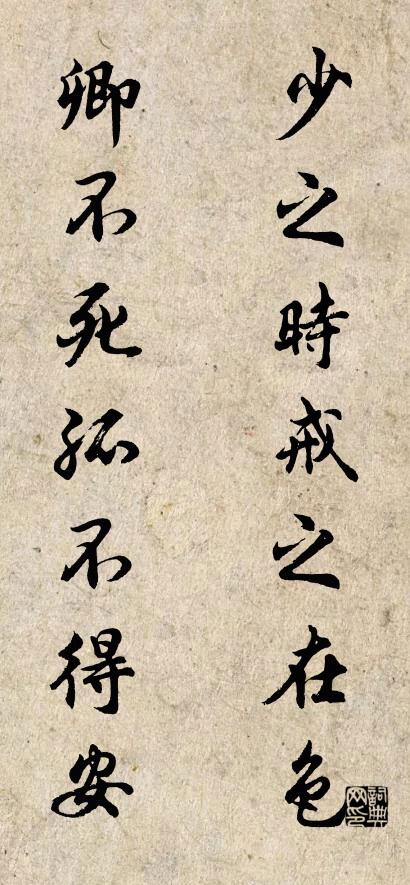 少之時戒之在色
卿不死孤不得安
詞典网印